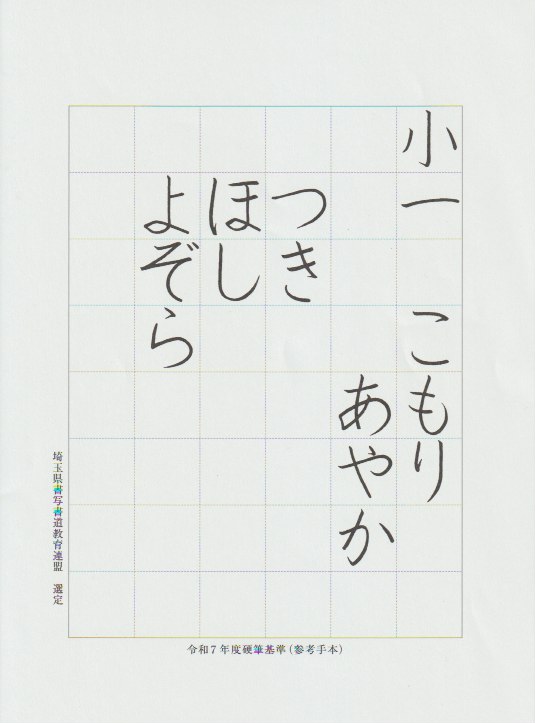 小一　こもり
あやか
つき
ほし
よぞら
埼玉県書写書道教育連盟　選定
令和7年度硬筆基準(参考手本)